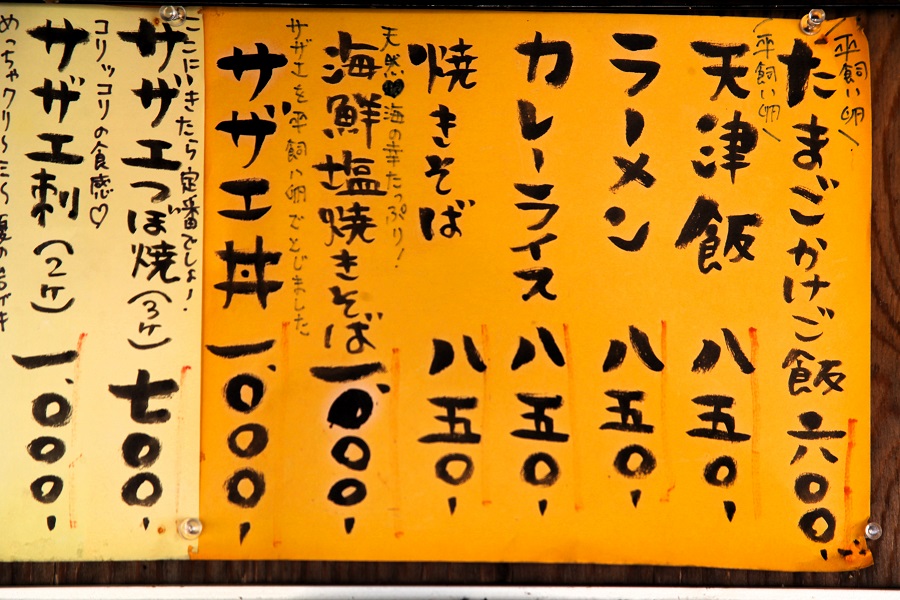 平飼い卵
たまごかけご飯 六〇〇
平飼い卵
天津飯 八五〇
ラーメン 八五〇
カレーライス 八五〇
焼きそば 八五〇
天然♥海の幸たっぷり!
海鮮塩焼きそば 一、〇〇〇
サザエを平飼い卵でとじました
サザエ丼 一、〇〇〇
ここにきたら定番でしょ!
サザエつぼ焼(3ケ) 七〇〇
コリッコリの食感♡
サザエ刺(2ケ) 一、〇〇〇